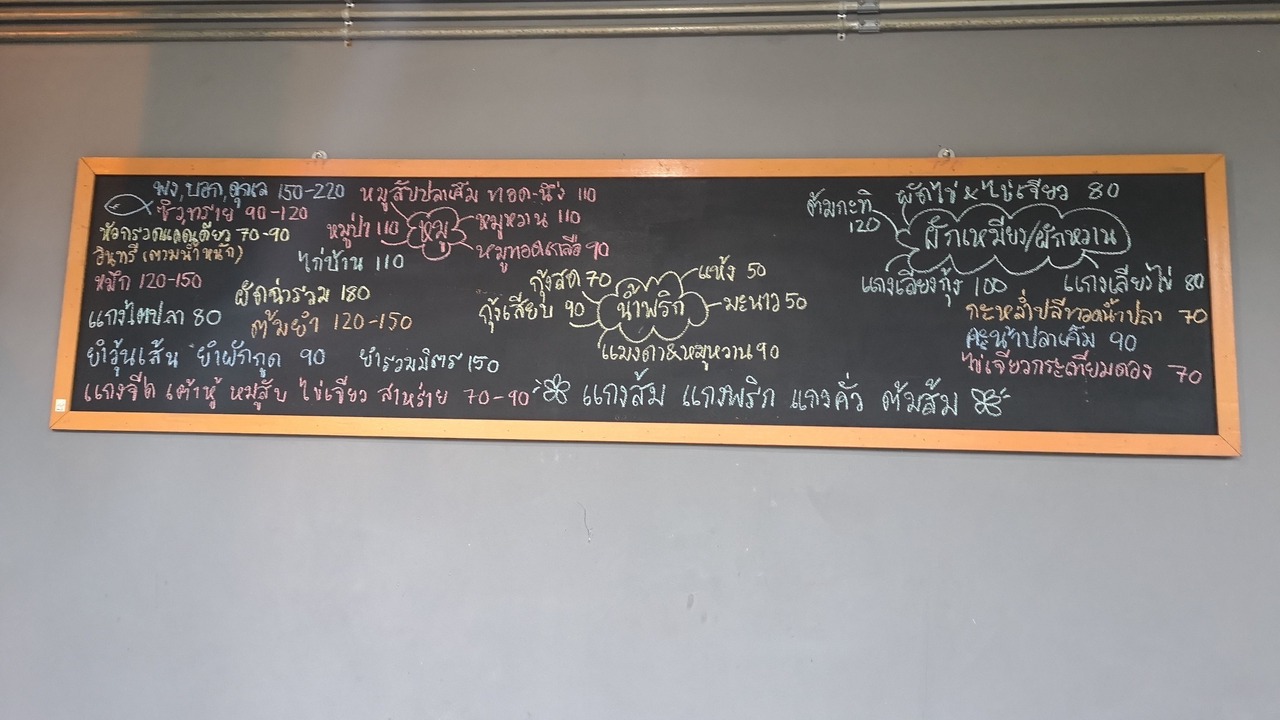 พง,บอก,ดุกเล 150-220
ซิวทราย 90-120
หัวกรวดแดดเดียว 70-90
อินทรี (ตามน้ำหนัก)
หมึก 120-150
แกงไตปลา 80
ยำวุ้นเส้น ยำผักกูด 90
แกงจืด เต้าหู้ หมูสับ ไข่เจียว สาหร่าย 70-90
ไก่บ้าน 110
ผัดฉ่ารวม 180
ต้มยำ 120-150
ยำรวมมิตร 150
หมูสับปลาเค็ม ทอด-นึ่ง 110
หมูป่า 110
หมู
หมูหวาน 110
หมูทอดเกลือ 90
กุ้งสด 70
แห้ง 50
กุ้งเสียบ 90
น้ำพริก
มะนาว 50
แมงดา&หมูหวาน 90
แกงส้ม แกงพริก แกงคั่ว ต้มส้ม
ต้มกะทิ 120
ผัดไข่ x ไข่เจียว 80
ผักเหมียง/ผักหวาน
แกงเลียงกุ้ง 100
แกงเลียงไข่ 80
กะหล่ำปลีทอดน้ำปลา 70
คะน้าปลาเค็ม 90
ไข่เจียวกระเทียมดอง 70